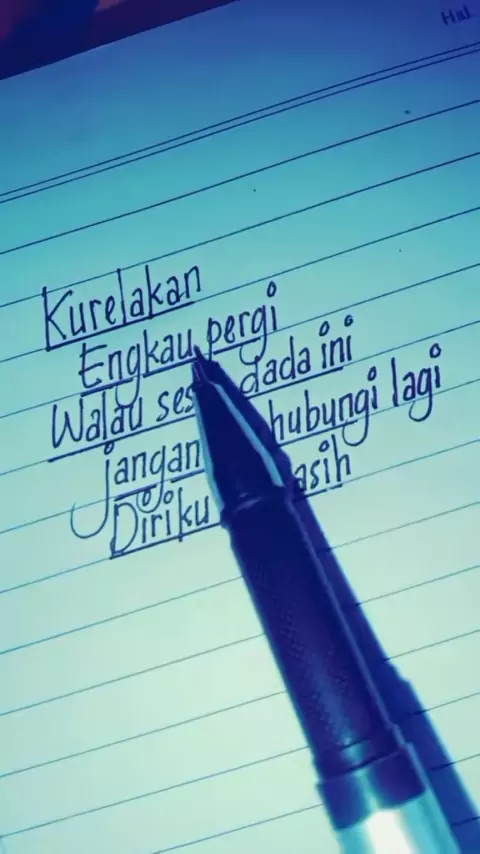 Hal
Kurelakan
Engkau pergi
Walau dada ini
jangan hubungi lagi
Diriku